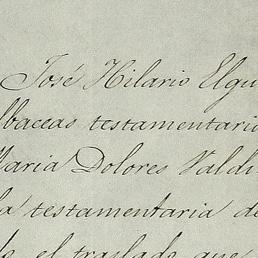 José Hilario Elgu
lbaceas testamentario
María Dolores Valdi
la testamentaria de
el traslado que